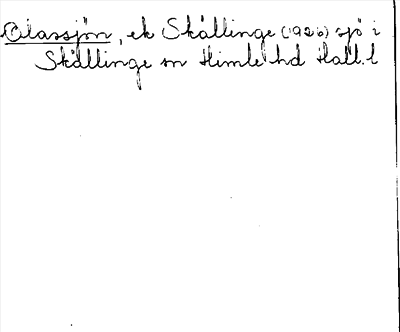 Olassjön, ek Skällinge (1926) sjö i
Skällinge sn Himle hd Hall. l